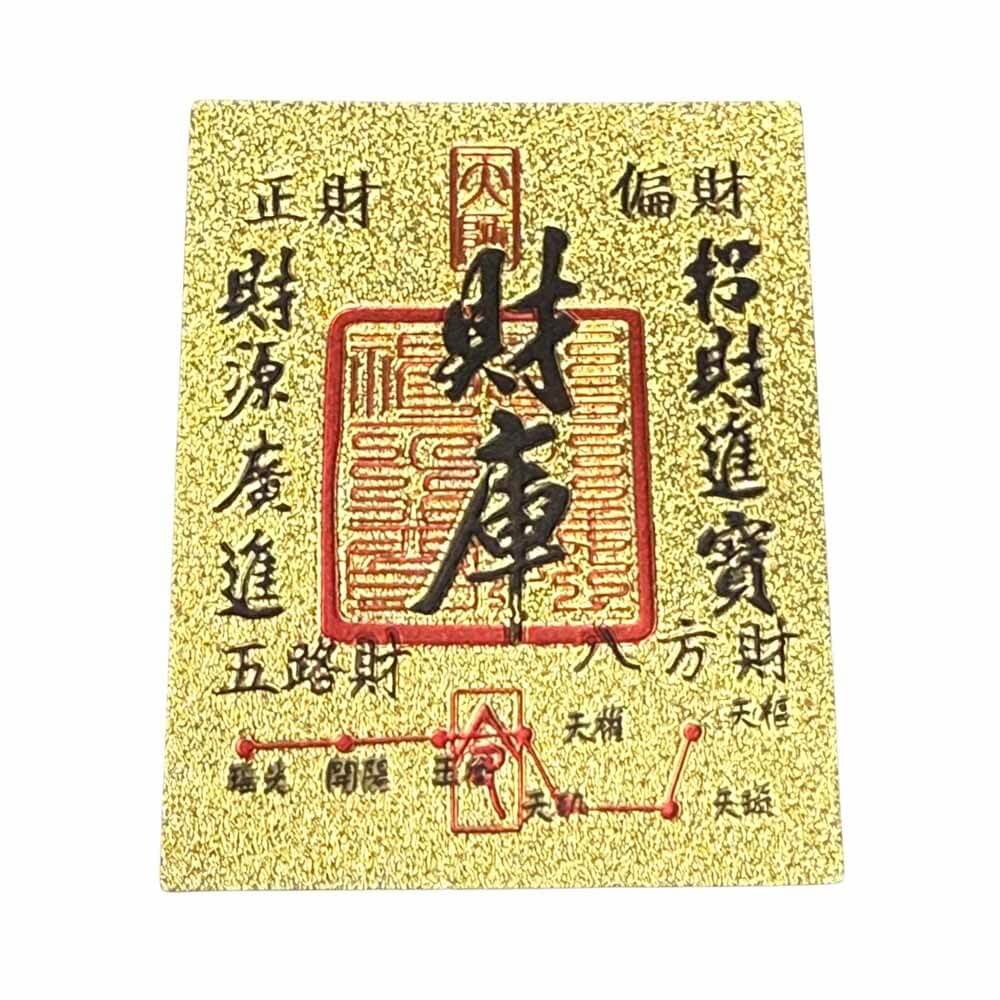 偏財
正財
招財進寶
財庫
財源廣進
八方財
五路財
天樞
天璇
天璣
天權
玉衡
開陽
瑤光
命